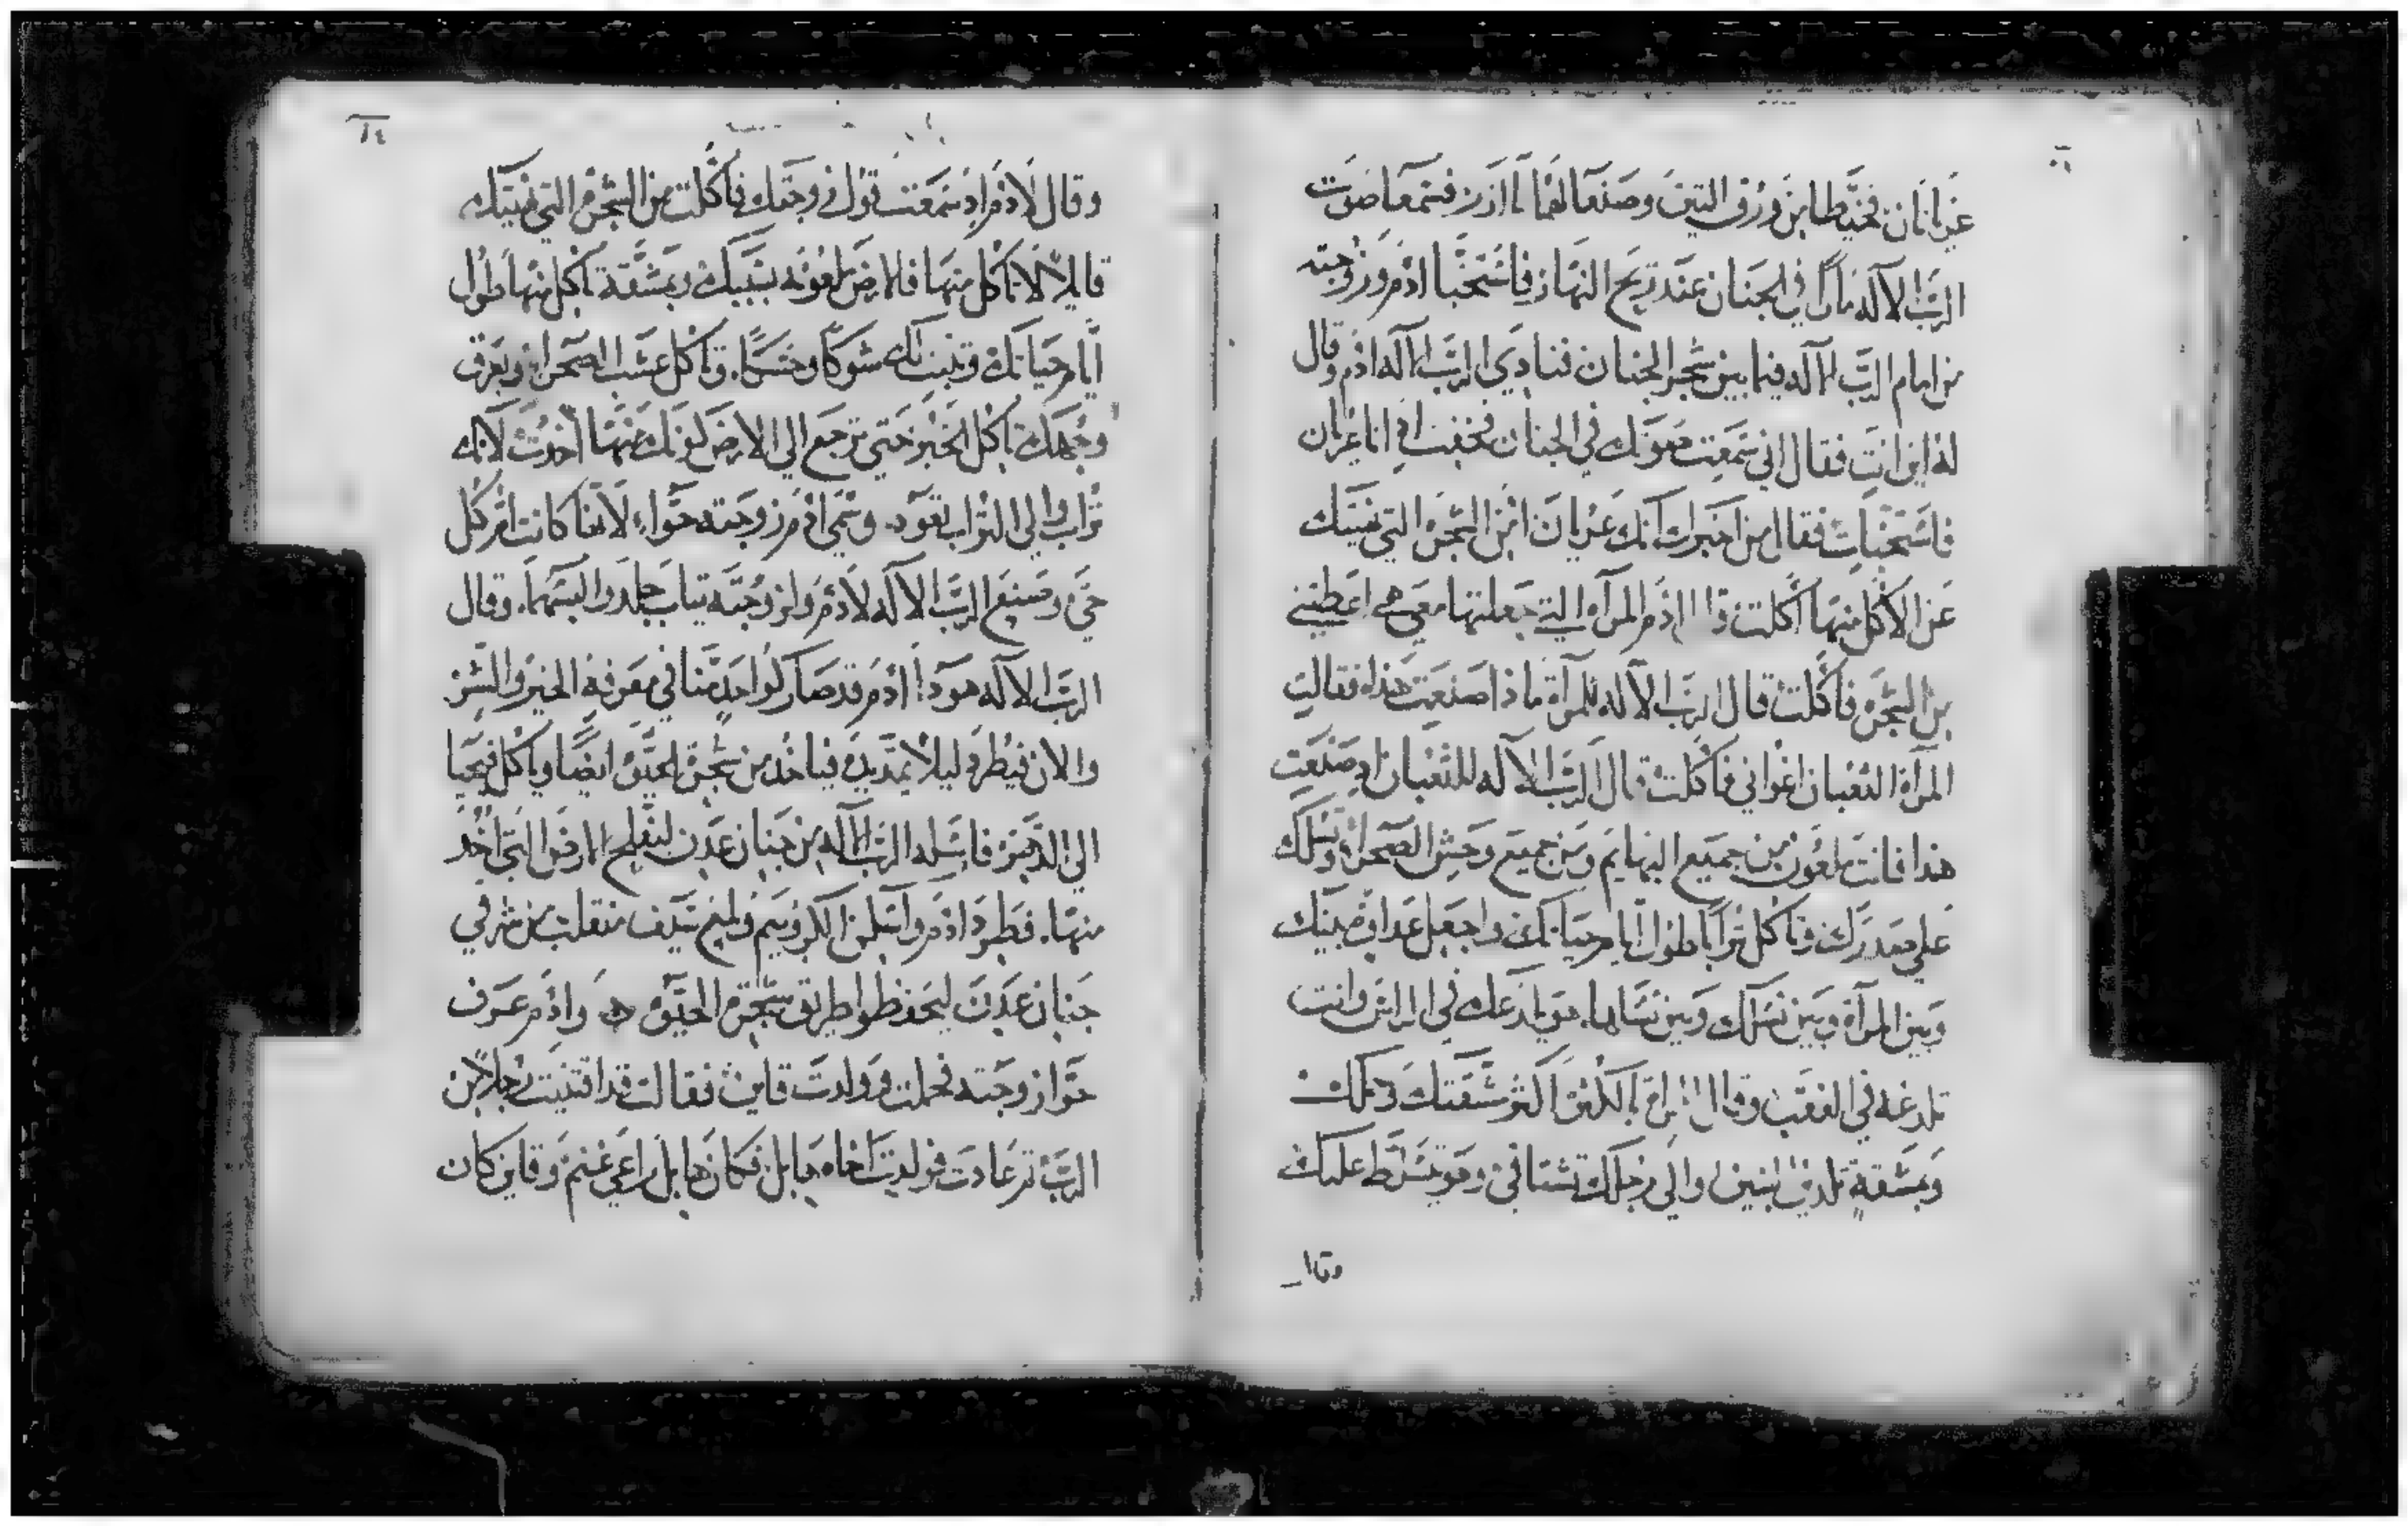 عريانان فخيطا من ورق التين وصنعا لهما مازر فسمعا صوت
الرب الاله مارا في الجنان عند تريح النهار فاستخبا ادم وزوجته
من امام الرب الاله فيما بين شجر الجنان فنادي الرب الاله ادم وقال
له اين انت فقال اني سمعت صوتك في الجنان فخفت اذ انا عريان
فاستخبات فقال من اخبرك انك عريان امن الشجره التي نهيتك
عن الاكل منها اكلت قال ادم المراه التي جعلتها معي هي اعطتني
من الشجره فاكلت قال الرب الاله للمراة ما ذا صنعت هذا فقالت
المراة الثعبان اغواني فاكلت قال الرب الاله للثعبان اد صنعت
هذا فانت ملعون من جميع البهايم ومن جميع وحش الصحراء وتسلك
علي صدرك وتاكل ترابا طول ايام حياتك واجعل عداوه بينك
وبين المراة وبين نسلك وبين نسلها هو يلدعك في الراس وانت
تلدغه في العقب وقال للمراة لاكثرن اكثر مشقتك وحملك
وبمشقة تلدي البنين والي رجلك تشتاقي وهو يتسلط عليك
وقال
١٤
وقال لادم اد سمعت قول زوجتك فاكلت من الشجره التي نهيتك
قايلا لا تاكل منها فالارض ملعونه بسببك وبمشقة تاكل منها طول
ايام حياتك وتنبت لك شوكا وحسكا. وتاكل عشب الصحراء وبعرق
وجهك تاكل الخبز حتي ترجع الي الارض لانك منها اخدت لانك
تراب والي التراب تعود. وسمي ادم زوجته حواء لانها كانت ام كل
حي وصنع الرب الاله لادم ولزوجته تياب جلد والبسهما. وقال
الرب الاله هودا ادم قد صار كواحد منا في معرفة الخير والشر
والان فيطرد ليلا يمد يده فياخد من شجرة الحيوة ايضا وياكل فيحيا
الي الدهر. فارسله الرب الاله من جنان عدن ليفلح الارض التي اخد
منها. فطرد ادم واسكن الكروبيم ولميع سيف منقلب من شرقي
جنان عدن ليحفظوا طريق شجرة الحيوة ه وادم عرف
حوا زوجته فحملت وولدت قاين فقالت قد اقتنيت رجلا من
الرب تم عادت فولدت اخاه هابل فكان هابل راعي غنم وقاين كان